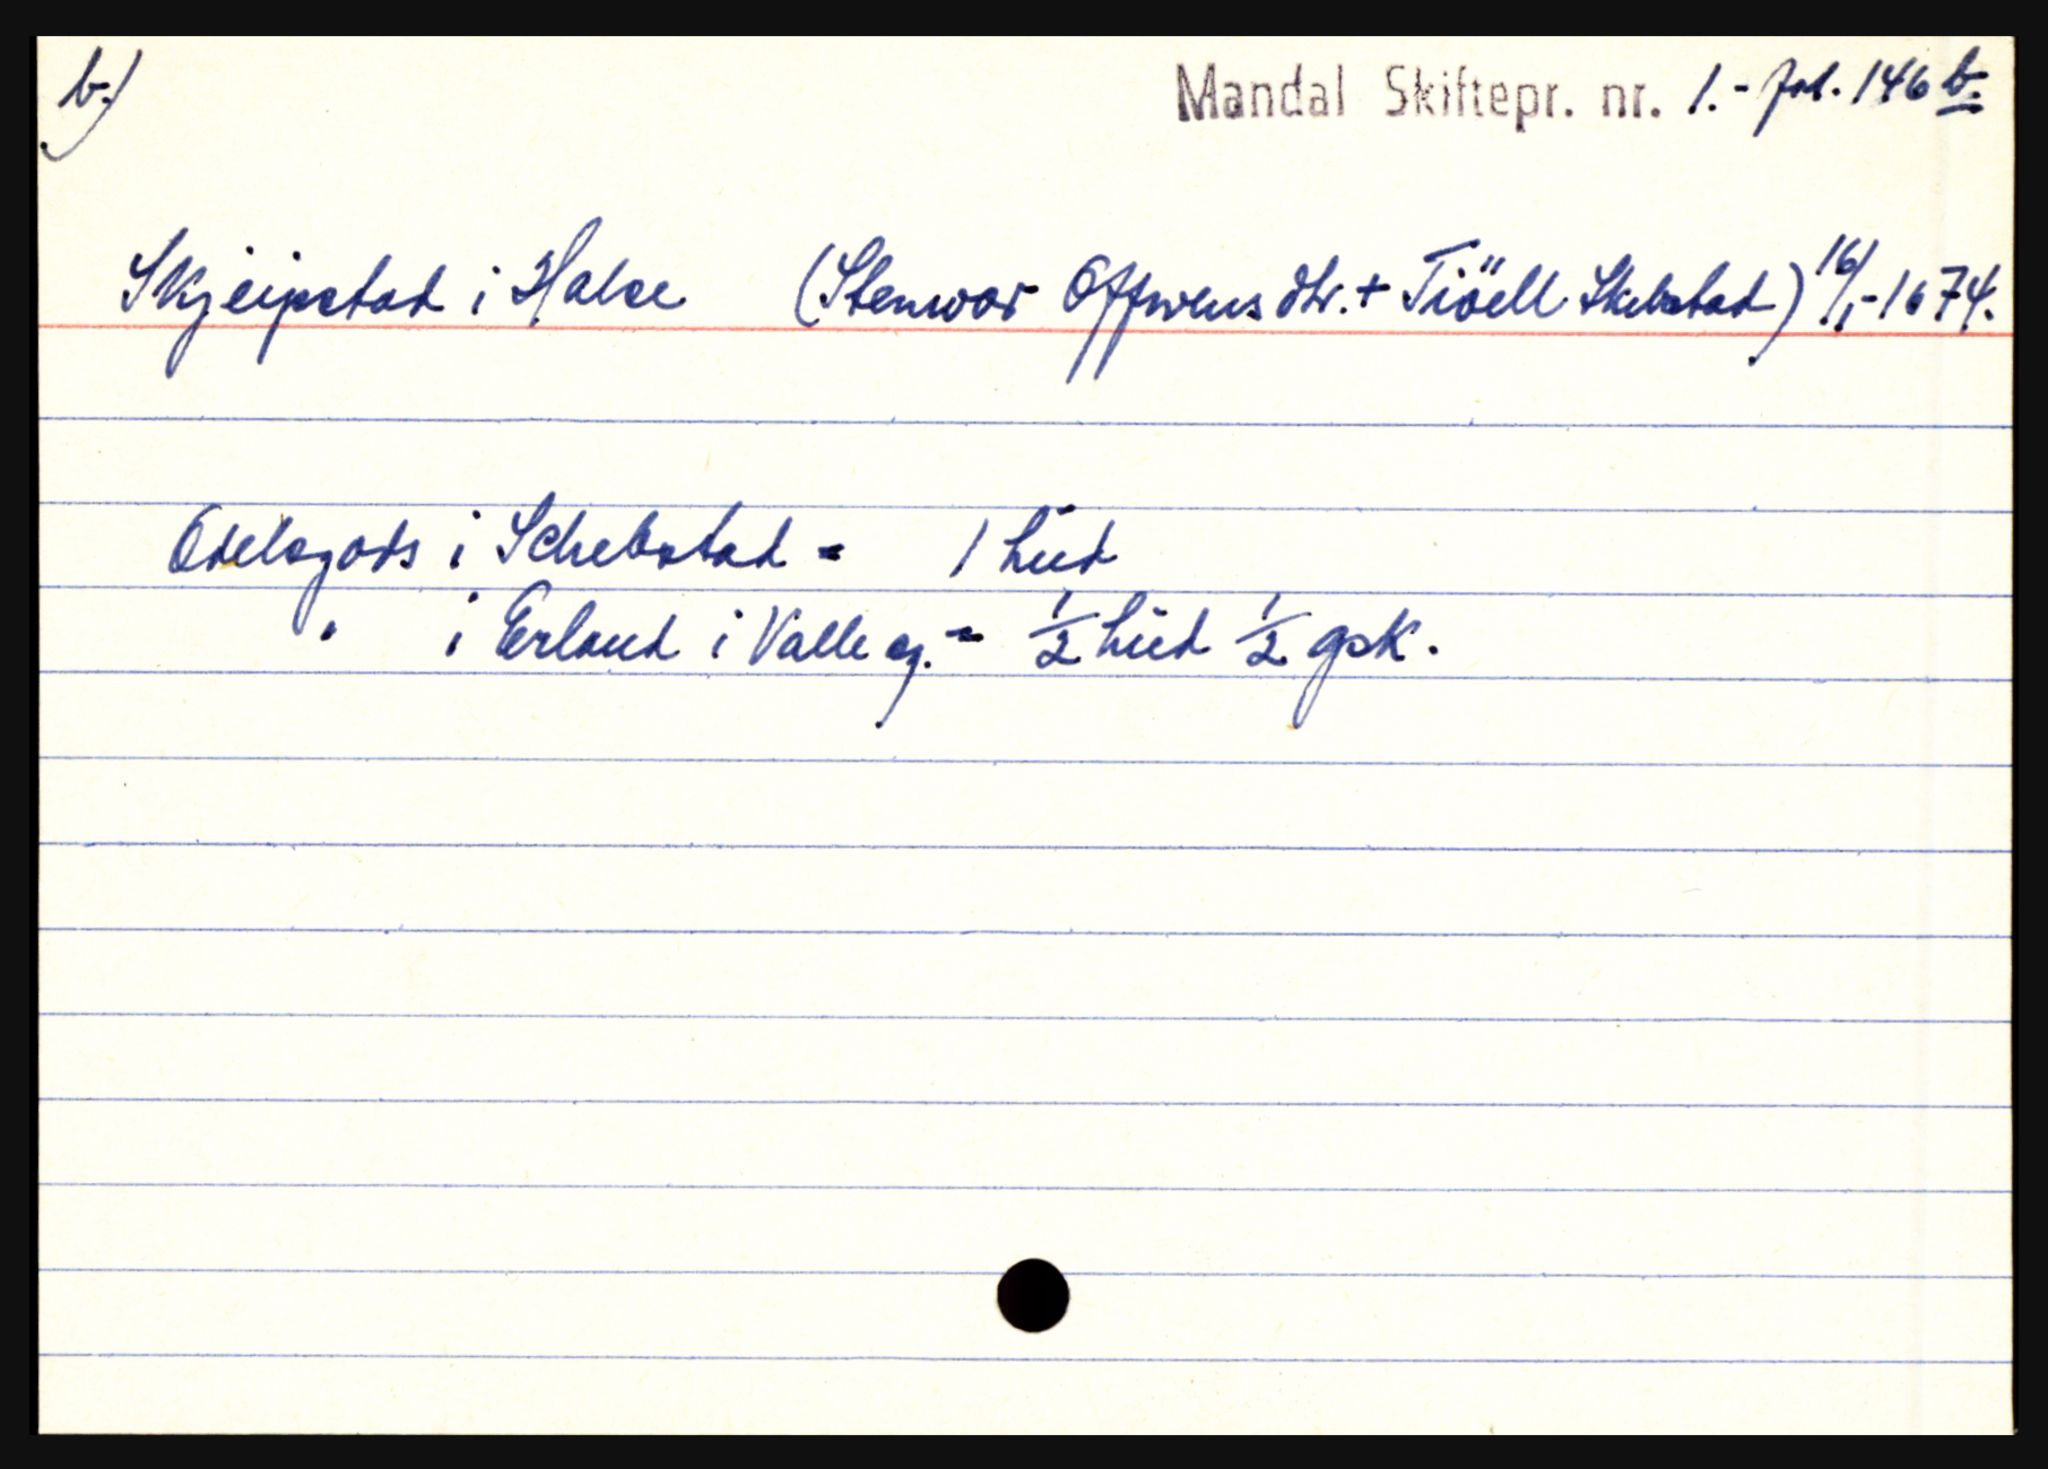 b.)
Mandal Skiftepr. nr. 1.- fol. 146 b.
Skjeipstad i Halse (Stenwor Offwens dtr. + Tiöell Skebstad) 16/1-1674.
Odelsgods i Schebstad = 1 hüd
" i Erland i Valle sg. = 1/2 hüd 1/2 gsk.